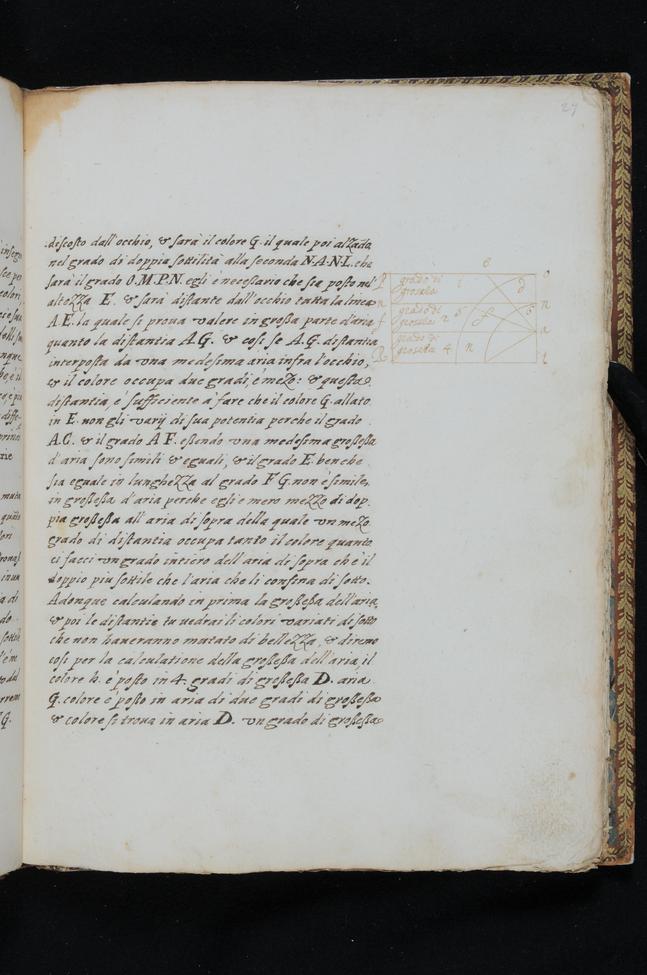 27
discosto dall'occhio, & sarà il colore G. il quale poi alzado
nel grado di doppia sottilità alla seconda N.A.N.L. che
sarà il grado O.M.P.N. egli è necessario che sia posto nel'
altezza E. & sarà distante dall'occhio tutta la linea
A E. la quale si prova valere in grossa parte d'aria
quanto la distantia A G. & cosi se A G. distantia
interposta da una medesima aria infra l'occhio,
& il colore occupa due gradi, è mezo: & questa
distantia, è sufficiente a fare che il colore G. allato
in E. non gli varij di sua potentia perche il grado
A C. & il grado A F. essendo una medesima grossessa
d'aria sono simili & eguali, & il grado E. benche
sia eguale in lunghezza al grado F G. non è simile,
in grossessa d'aria perche egli è mero mezzo di dop.
pia grossessa all'aria di sopra della quale un mezo
grado di distantia occupa tanto il colore quanto
ci facci un grado intiero dell'aria di sopra ch'è il
doppio piu sottile che l'aria che li confina di sotto.
Adonque calculando in prima la grossessa dell'aria,
& poi le distantie tu uedrai li colori variati di sotto
che non haueranno mutato di bellezza, & diremo
cosi per la calculatione della grossessa dell'aria, il
colore h. è posto in 4. gradi di grossessa D. aria
G. colore è posto in aria di due gradi di grossessa
& colore si troua in aria D. un grado di grossessa
e
grado di
grosseza
grado di
grosseza 2
grado di
grosseza 4
n
o
n
a